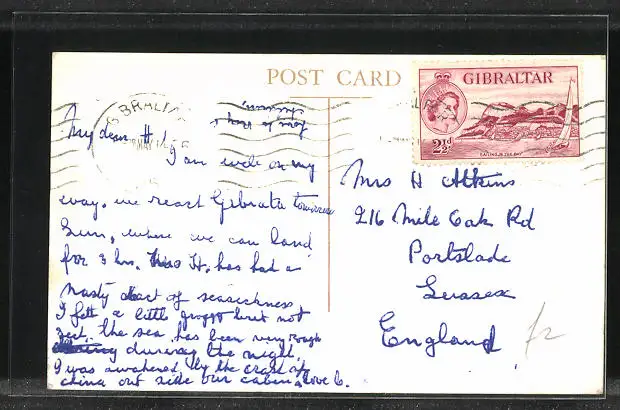 POST CARD
GIBRALTAR
2½d
GIBRALTAR
MAY
My dear H
I am well on my
way. we react Gebralta tomorrow
Sun, where we can land
for 3 hrs. Miss H. has had a
nasty attact of seasickness
I felt a little groggy but not
sect. the sea has been very rough
during the night.
I was awakened by the crash of
china out side our cabin, love G.
Mrs H Atkins
216 Mile Oak Rd
Portslade
Sussex
England